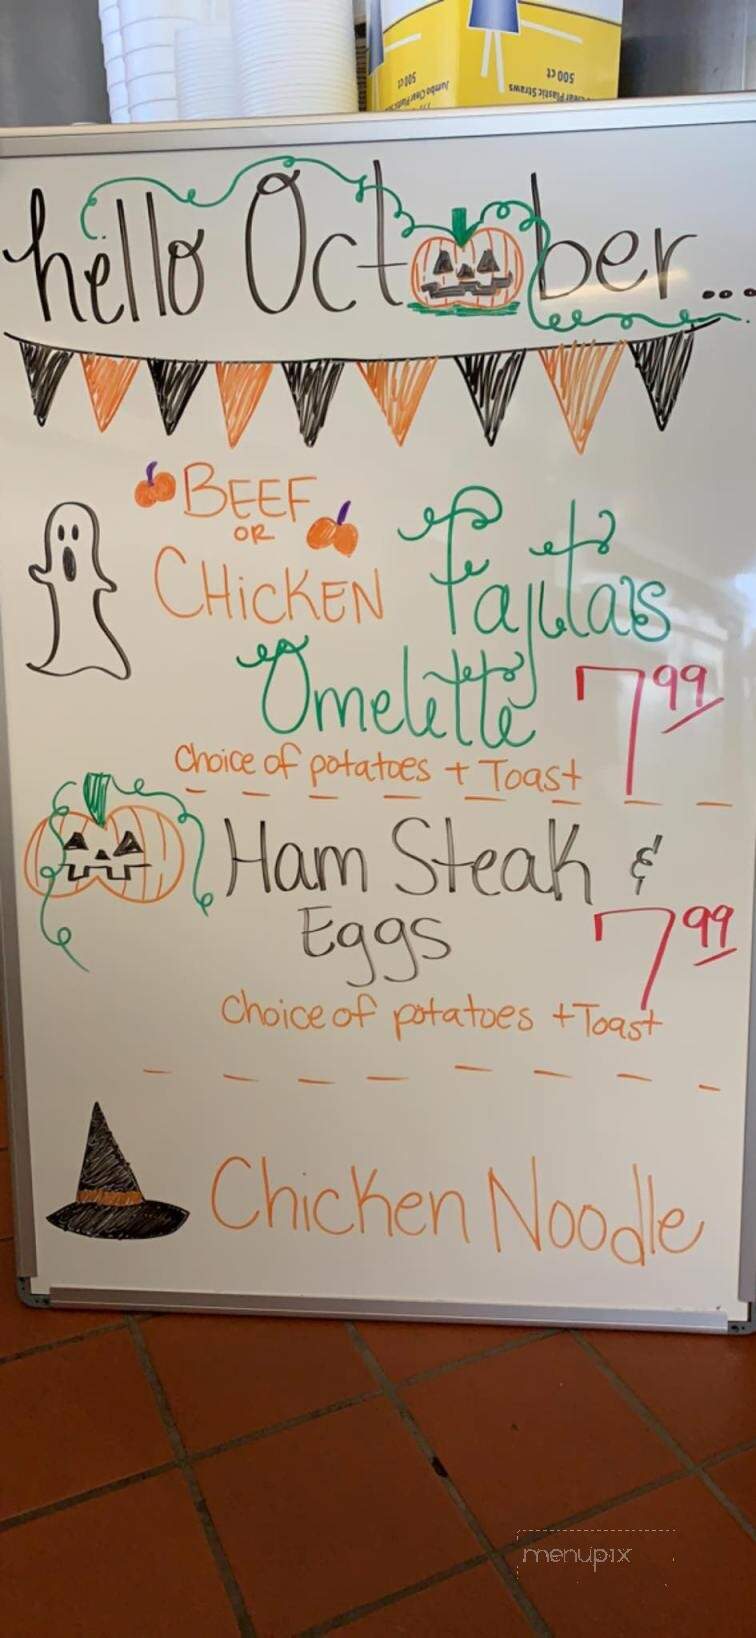 500 ct
Jumbo Clear Plastic Straws
500 ct
Clear Plastic Straws
hello October...
BEEF
OR
CHICKEN Fajitas
Omelette 7.99
Choice of potatoes + Toast
Ham Steak &
Eggs 7.99
Choice of potatoes + Toast
Chicken Noodle
menupix